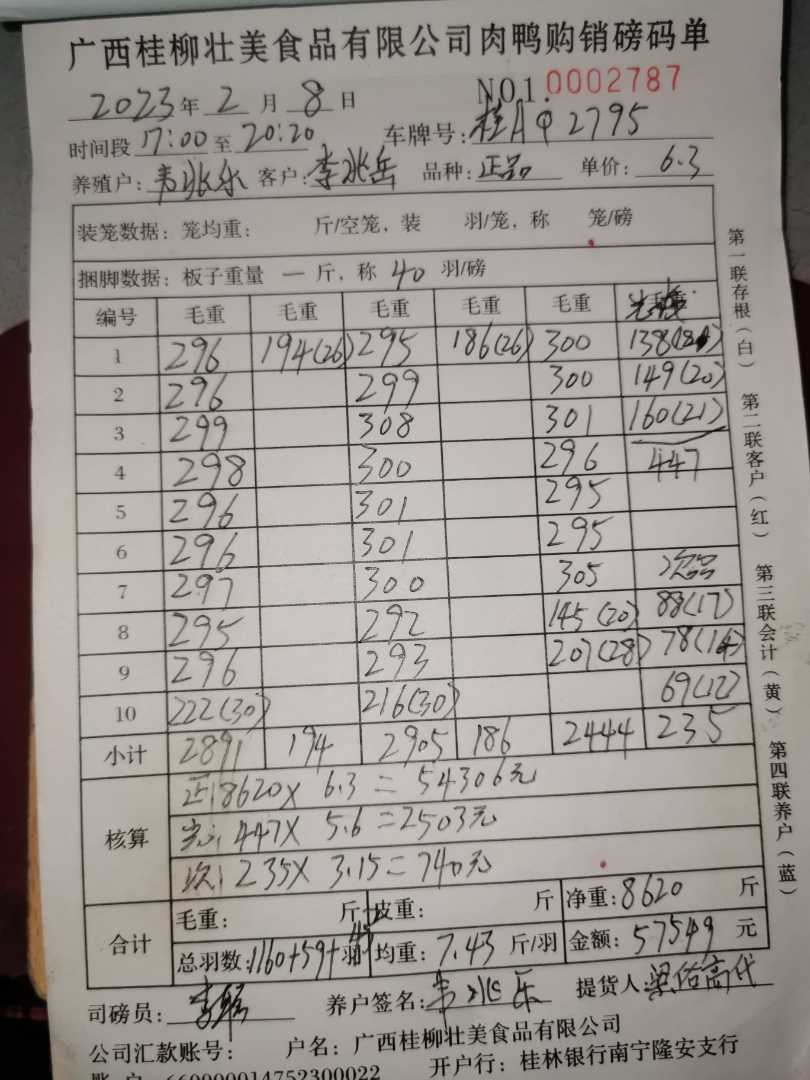 广西桂柳壮美食品有限公司肉鸭购销磅码单
2023年2月8日 NO1:0002787
时间段17:00至20:20 车牌号:桂AQ2795
养殖户:韦兆乐 客户:李兆岳 品种:正品 单价:6.3
装笼数据:笼均重: 斤/空笼,装 羽/笼,称 笼/磅
捆脚数据:板子重量 一 斤,称 40 羽/磅
编号 毛重 毛重 毛重 毛重 毛重
1 296 194(26) 295 186(26) 300 138
2 296 299 300 149(20)
3 299 308 301 160(21)
4 298 300 296 447
5 296 301 295
6 296 301 295
7 297 300 305 次品
8 295 292 145(20) 88(17)
9 296 293 207(28) 78(14)
10 222(30) 216(30) 69(12)
小计 2891 194 2905 186 2444 235
核算
正:8620X 6.3=54306元
447X 5.6=2503元
次:235X 3.15=740元
合计
毛重: 斤 皮重: 斤 净重:8620 斤
总羽数:1160+59+ 羽 均重:7.43斤/羽 金额:57549元
司磅员: 养户签名:韦兆乐 提货人:
公司汇款账号: 户名:广西桂柳壮美食品有限公司
账 户 660000014752300022 开户行:桂林银行南宁隆安支行
第一联存根(白) 第二联客户(红) 第三联会计(黄) 第四联养户(蓝)